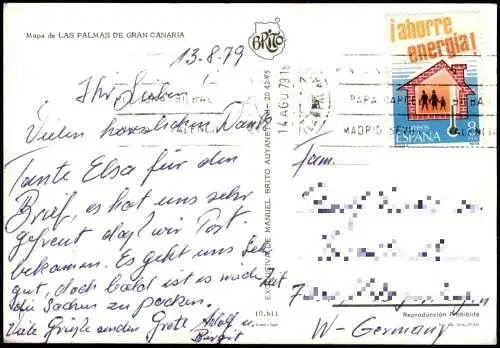 Mapa de LAS PALMAS DE GRAN CANARIA
BRITO
¡ahorre
energía!
13.8.79
14 AGO 79
ESPAÑA
8
MADRID
Ihr Lieben!
Vielen herzlichen Dank
Tante Elsa für den
Brief, es hat uns sehr
gefreut daß wir Post
bekamen. Es geht uns sehr
gut, doch bald ist es
die Sachen zu packen.
Viele Grüße senden Grete Adolf u.
Birgit
Fam.
EXCLUSIVA DE MANUEL BRITO
10.611
7
W-Germany
Reproducción Prohibida